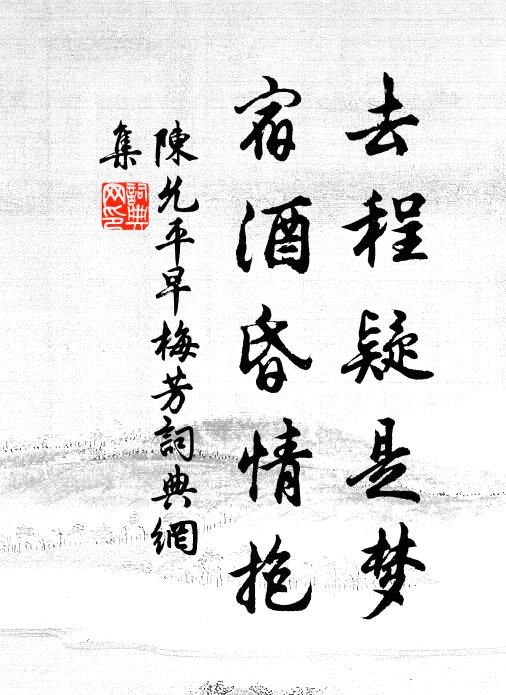 去程疑是梦
宿酒昏情抱
陳允平早梅芳詞典網
集
詞典
网印